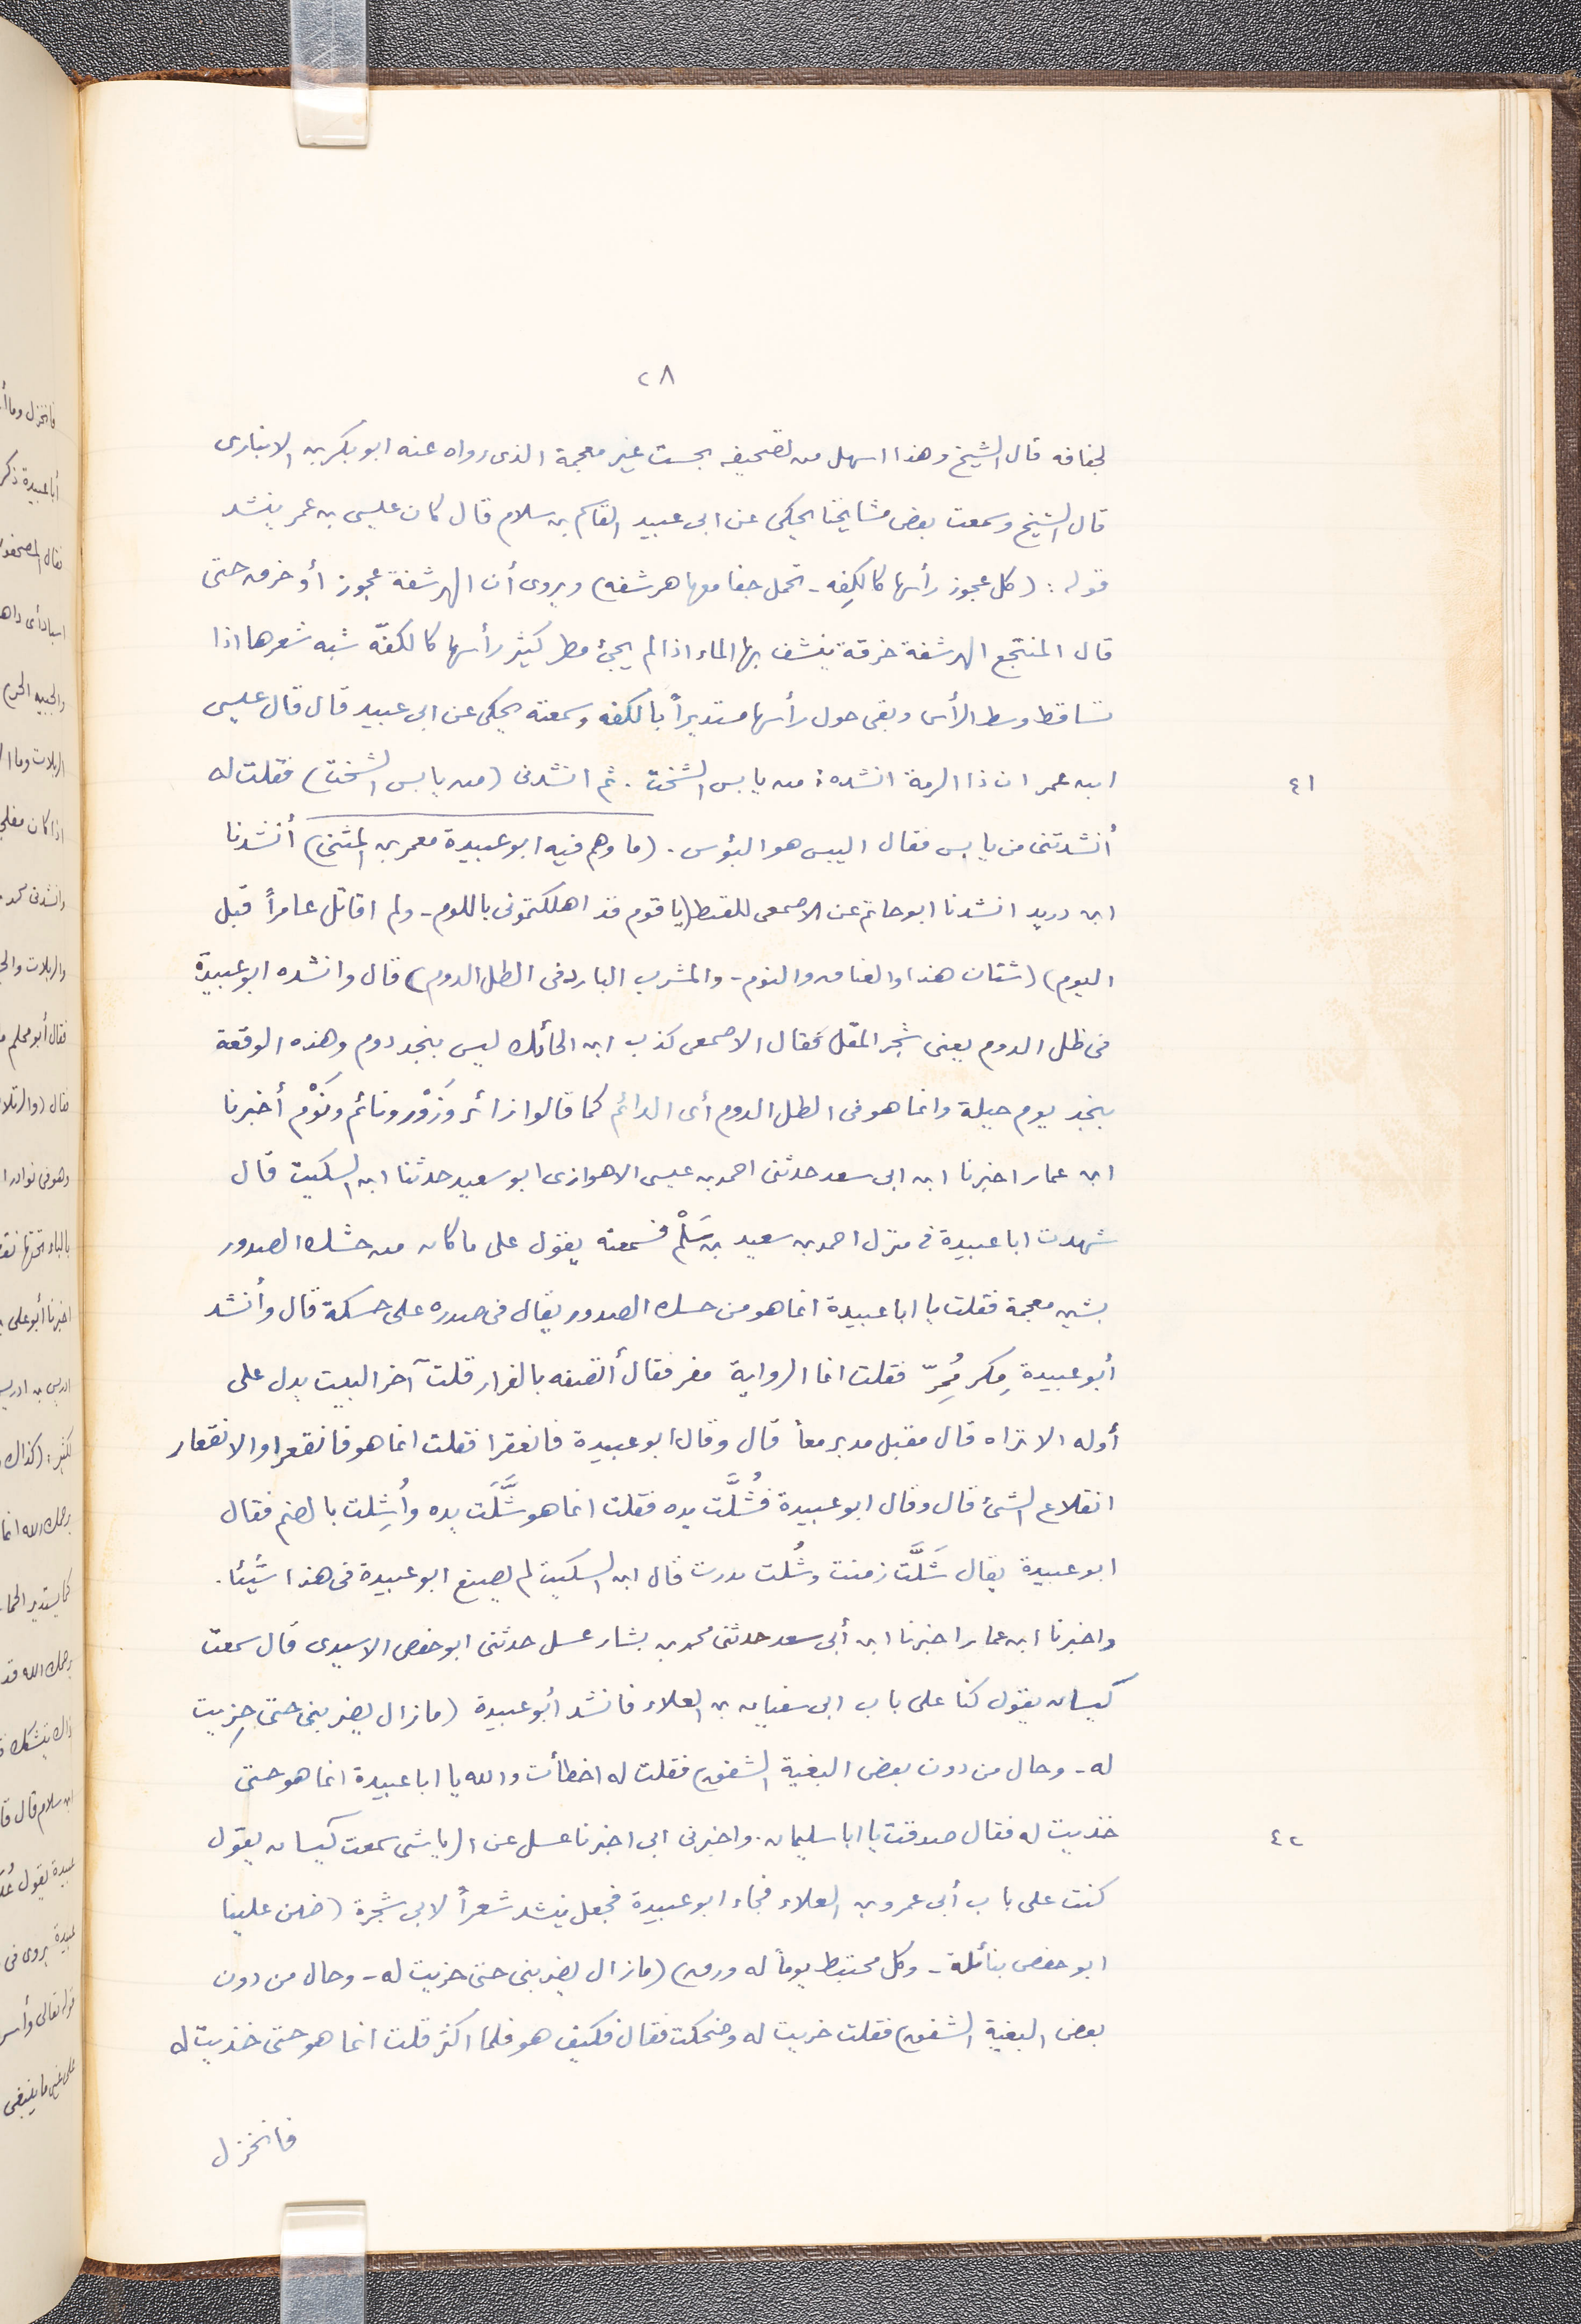 ٢٨
لجفافه قال الشيخ وهذا اسهل من تصحيفه بحست غير معجمة الذى رواه عنه ابو بكر بن الانبارى
قال الشيخ وسمعت بعض مشايخنا يحكى عن ابى عبيد القاسم بن سلام قال كان عيسى بن عمر ينشد
قوله : (كل عجوز رأسها كالكِفه - تحمل جفا معها هرشفه) ويروى أن الهرشفة عجوز أو خرقه حتى
قال المنتجع الهرشفة خرقة ينشف بها الماء اذا لم يجئ مطر كثير رأسها كالكفّه شبه شعرها اذا
تساقط وسط الرأس وبقى حول رأسها مستديراً بالكفه وسمعته يحكى عن ابى عبيد قال قال عيسى
٤١
ابن عمر ان ذا الرمة انشده : من يابس الشخت . ثم انشدنى (من يابس الشخت) فقلت له
أنشدتنى من يابس فقال اليبس هو البؤس . (ما وهم فيه ابو عبيدة معمر بن المثنى) أنشدنا
ابن دريد انشدنا ابو حاتم عن الاصمعى للقيط (يا قوم قد اهلكتمونى باللوم - ولم اقاتل عامراً قبل
اليوم) (شتان هذا والعناق والنوم - والمشرب البارد فى الظل الدوم) قال وانشده ابو عبيدة
فى ظل الدوم يعنى شجر المقل فقال الاصمعى كذب ابن الحائك ليس بنجد دوم وهذه الوقعة
بنجد يوم جبلة وانما هو فى الظل الدوم أى الدائم كما قالوا زائر وَزَوْر ونائم ونَوْم أخبرنا
ابن عمار اخبرنا ابن ابى سعد حدثنى احمد بن عيسى الاهوازى ابو سعيد حدثنا ابن السكيت قال
شهدت ابا عبيدة فى منزل احمد بن سعيد بن سَلْم فسمعته يقول على ما كان من حشك الصدور
بشين معجمة فقلت يا ابا عبيدة انما هو من حسك الصدور يقال فى صدره على حسكة قال وأنشد
أبو عبيدة مِكر مُمِرّ فقلت انما الرواية مفر فقال أتصفه بالفرار قلت آخر البيت يدل على
أوله الا تراه قال مقبل مدبر معاً قال وقال ابو عبيدة فانعقرا فقلت انما هو فانقعرا والانقعار
انقلاع الشئ قال وقال ابو عبيدة فشُلَّت يده فقلت انما هو شَلَّت يده وأُشِلت بالضم فقال
ابو عبيدة يقال شَلَّت زمنت وشُلت بدرت قال ابن السكيت لم يصنع ابو عبيدة فى هذا شيئا .
واخبرنا ابن عمار اخبرنا ابن أبى سعد حدثنى محمد بن بشار عسل حدثنى ابو حفص الاسيدى قال سمعت
كيسان يقول كنا على باب ابى سفيان بن العلاء فانشد أبو عبيدة (ما زال يضربنى حتى خِزيت
له - وحال من دون بعض البغية الشفق) فقلت له اخطأت والله يا ابا عبيدة انما هو حتى
٤٢
خذيت له فقال صدقت يا ابا سليمان . واخبرنى ابى اخبرنا عسل عن الرياشى سمعت كيسان يقول
كنت على باب أبى عمرو بن العلاء فجاء ابو عبيدة فجعل ينشد شعراً لابى شجرة (ضن علينا
ابو حفص بنائله - وكل مختبط يوماً له ورق) (ما زال يضربنى حتى خزيت له - وحال من دون
بعض البغية الشفق) فقلت خريت له وضحكت فقال فكيف هو فلما اكثر قلت انما هو حتى خذيت له
فانخزل